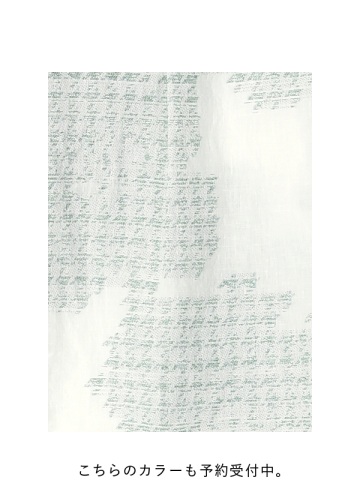 こちらのカラーも予約受付中。